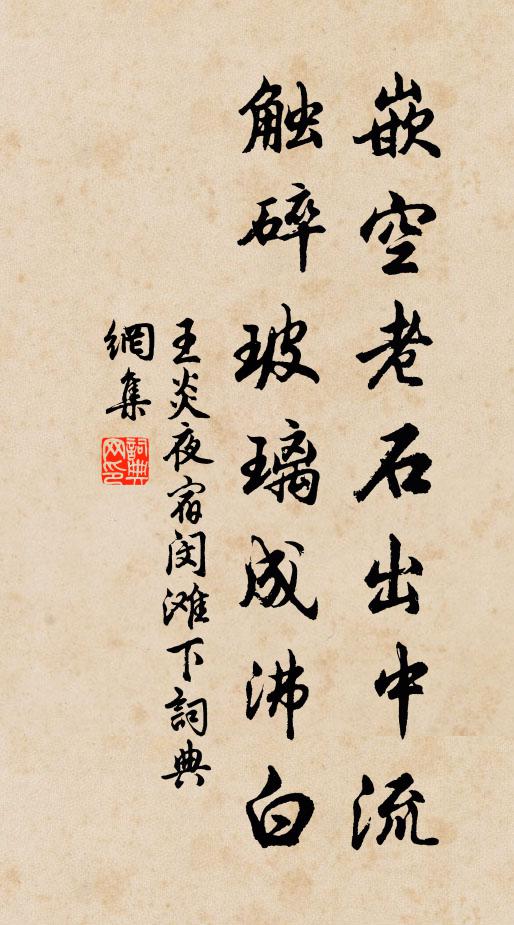 嵌空老石出中流
触碎玻璃成沸白
王炎夜宿闵滩下詞典
網集
詞典网印